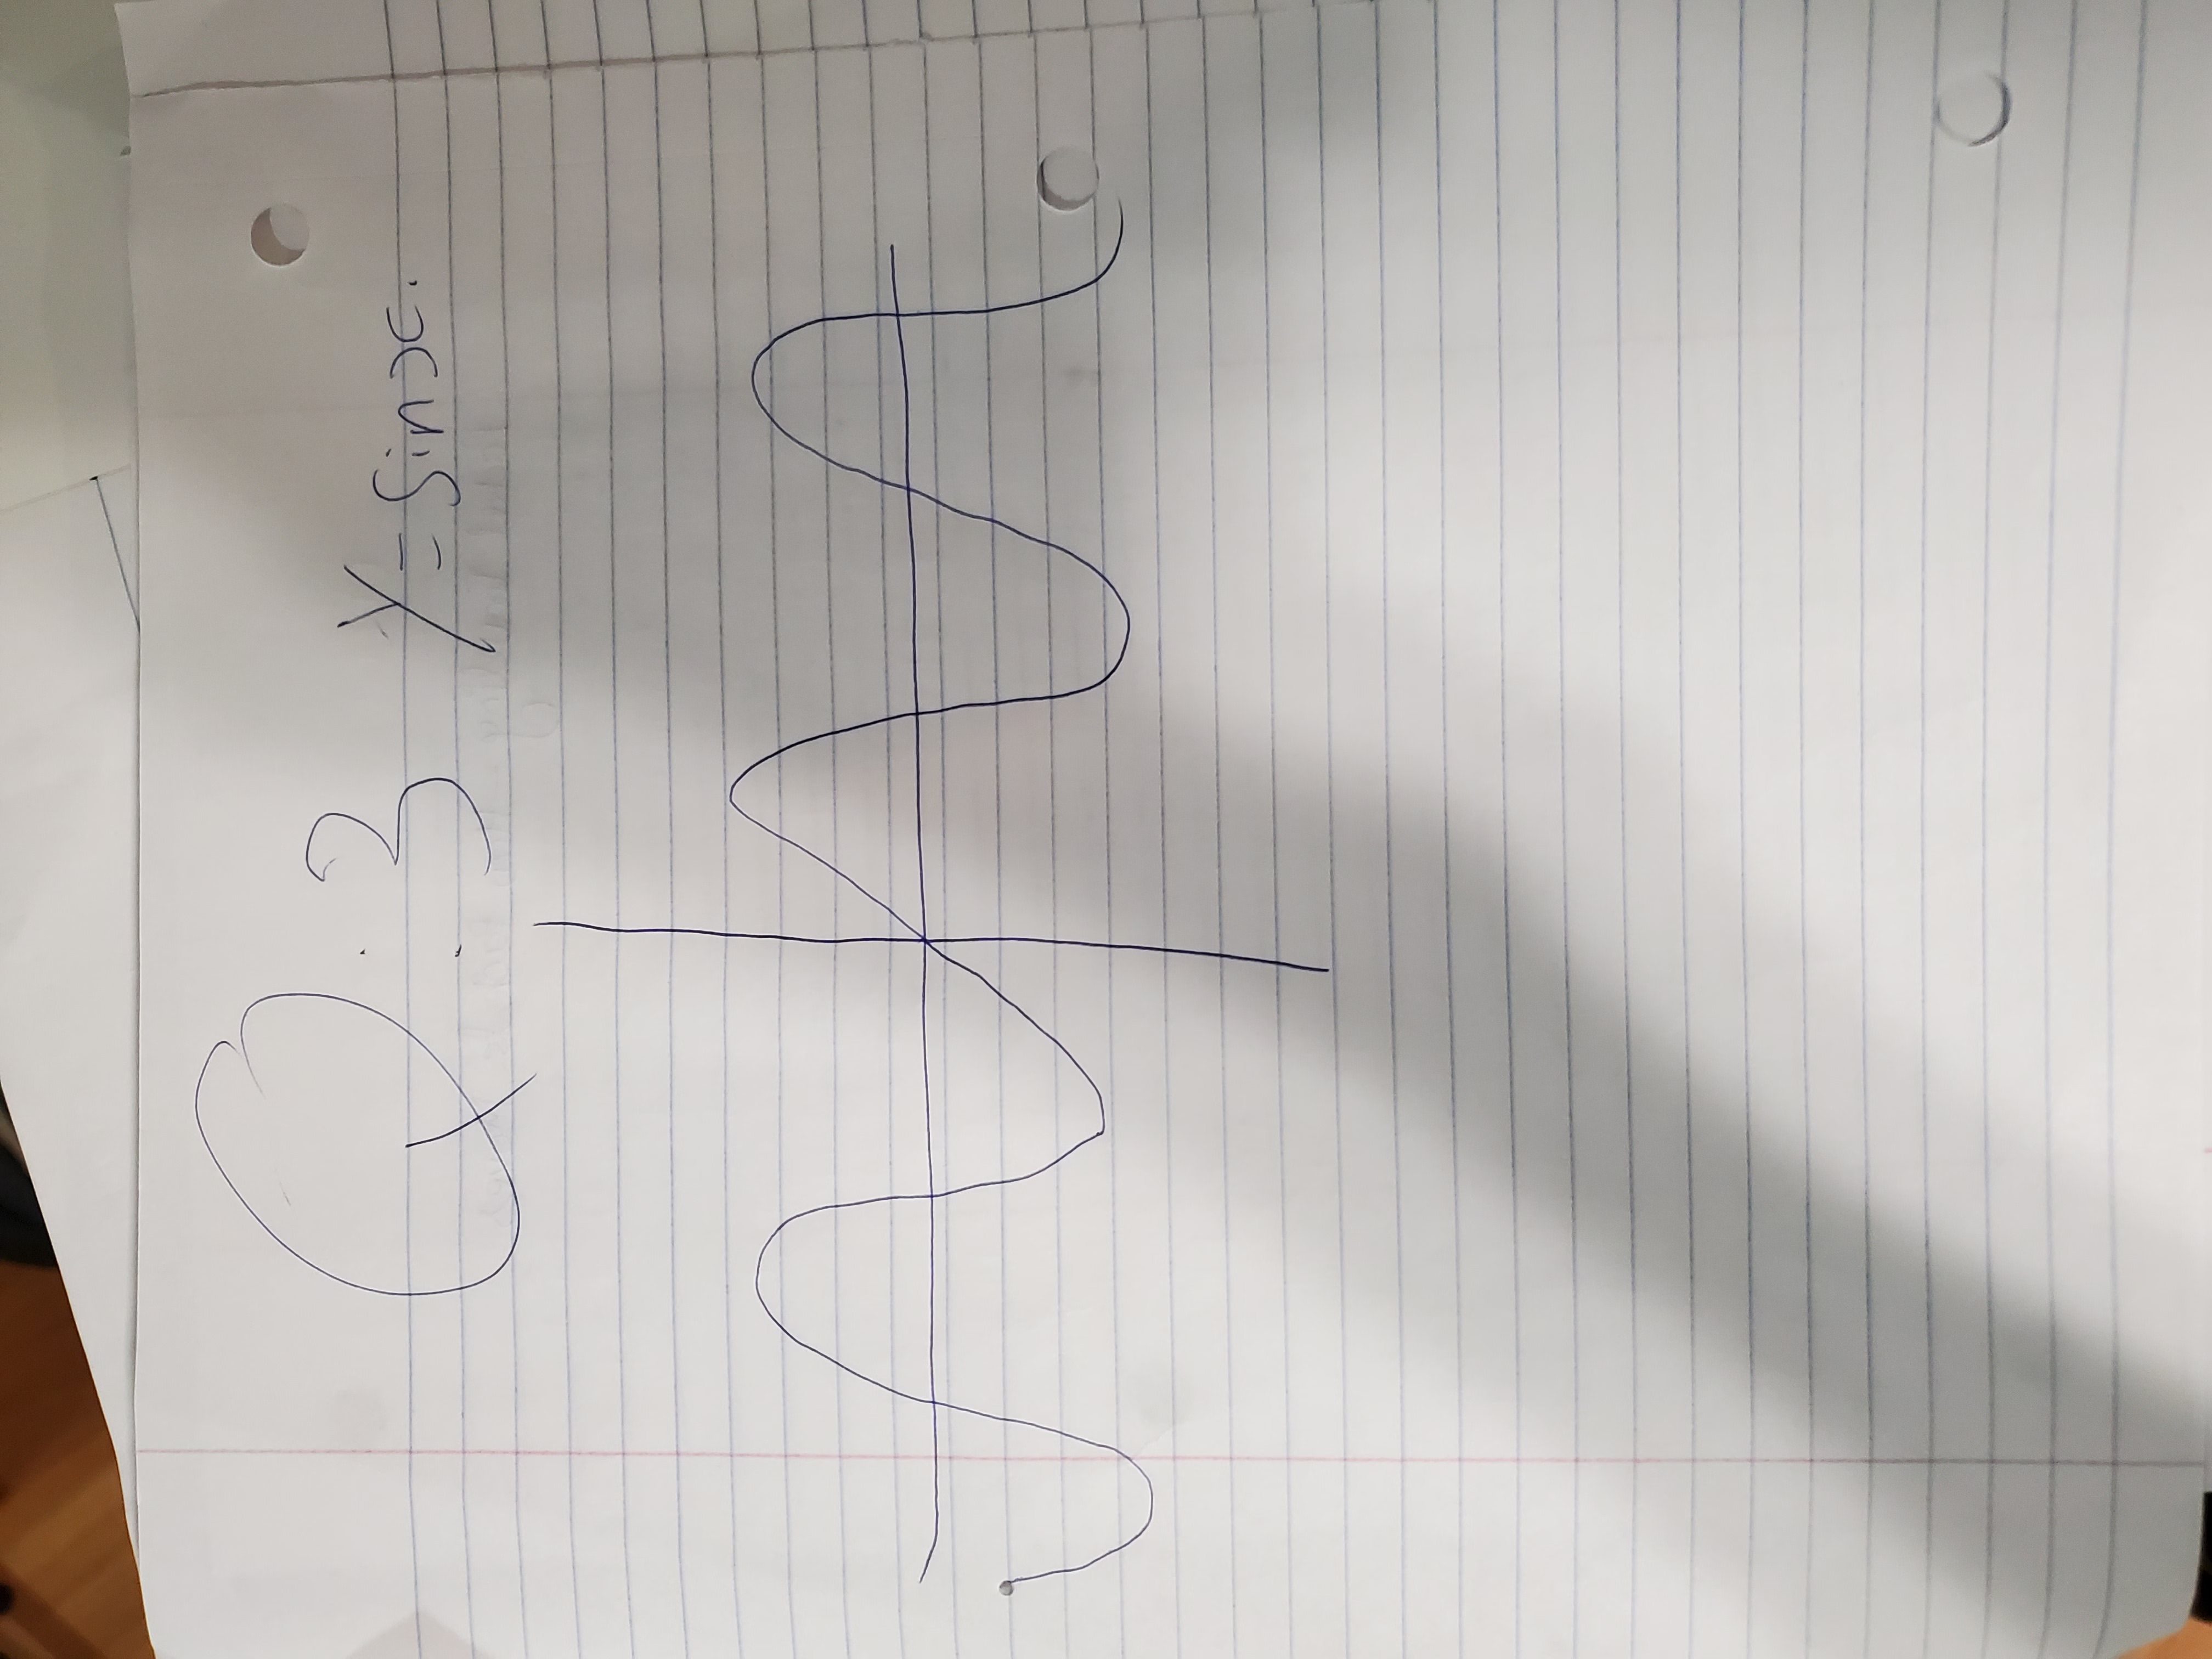 Q : 3 y = sinx.